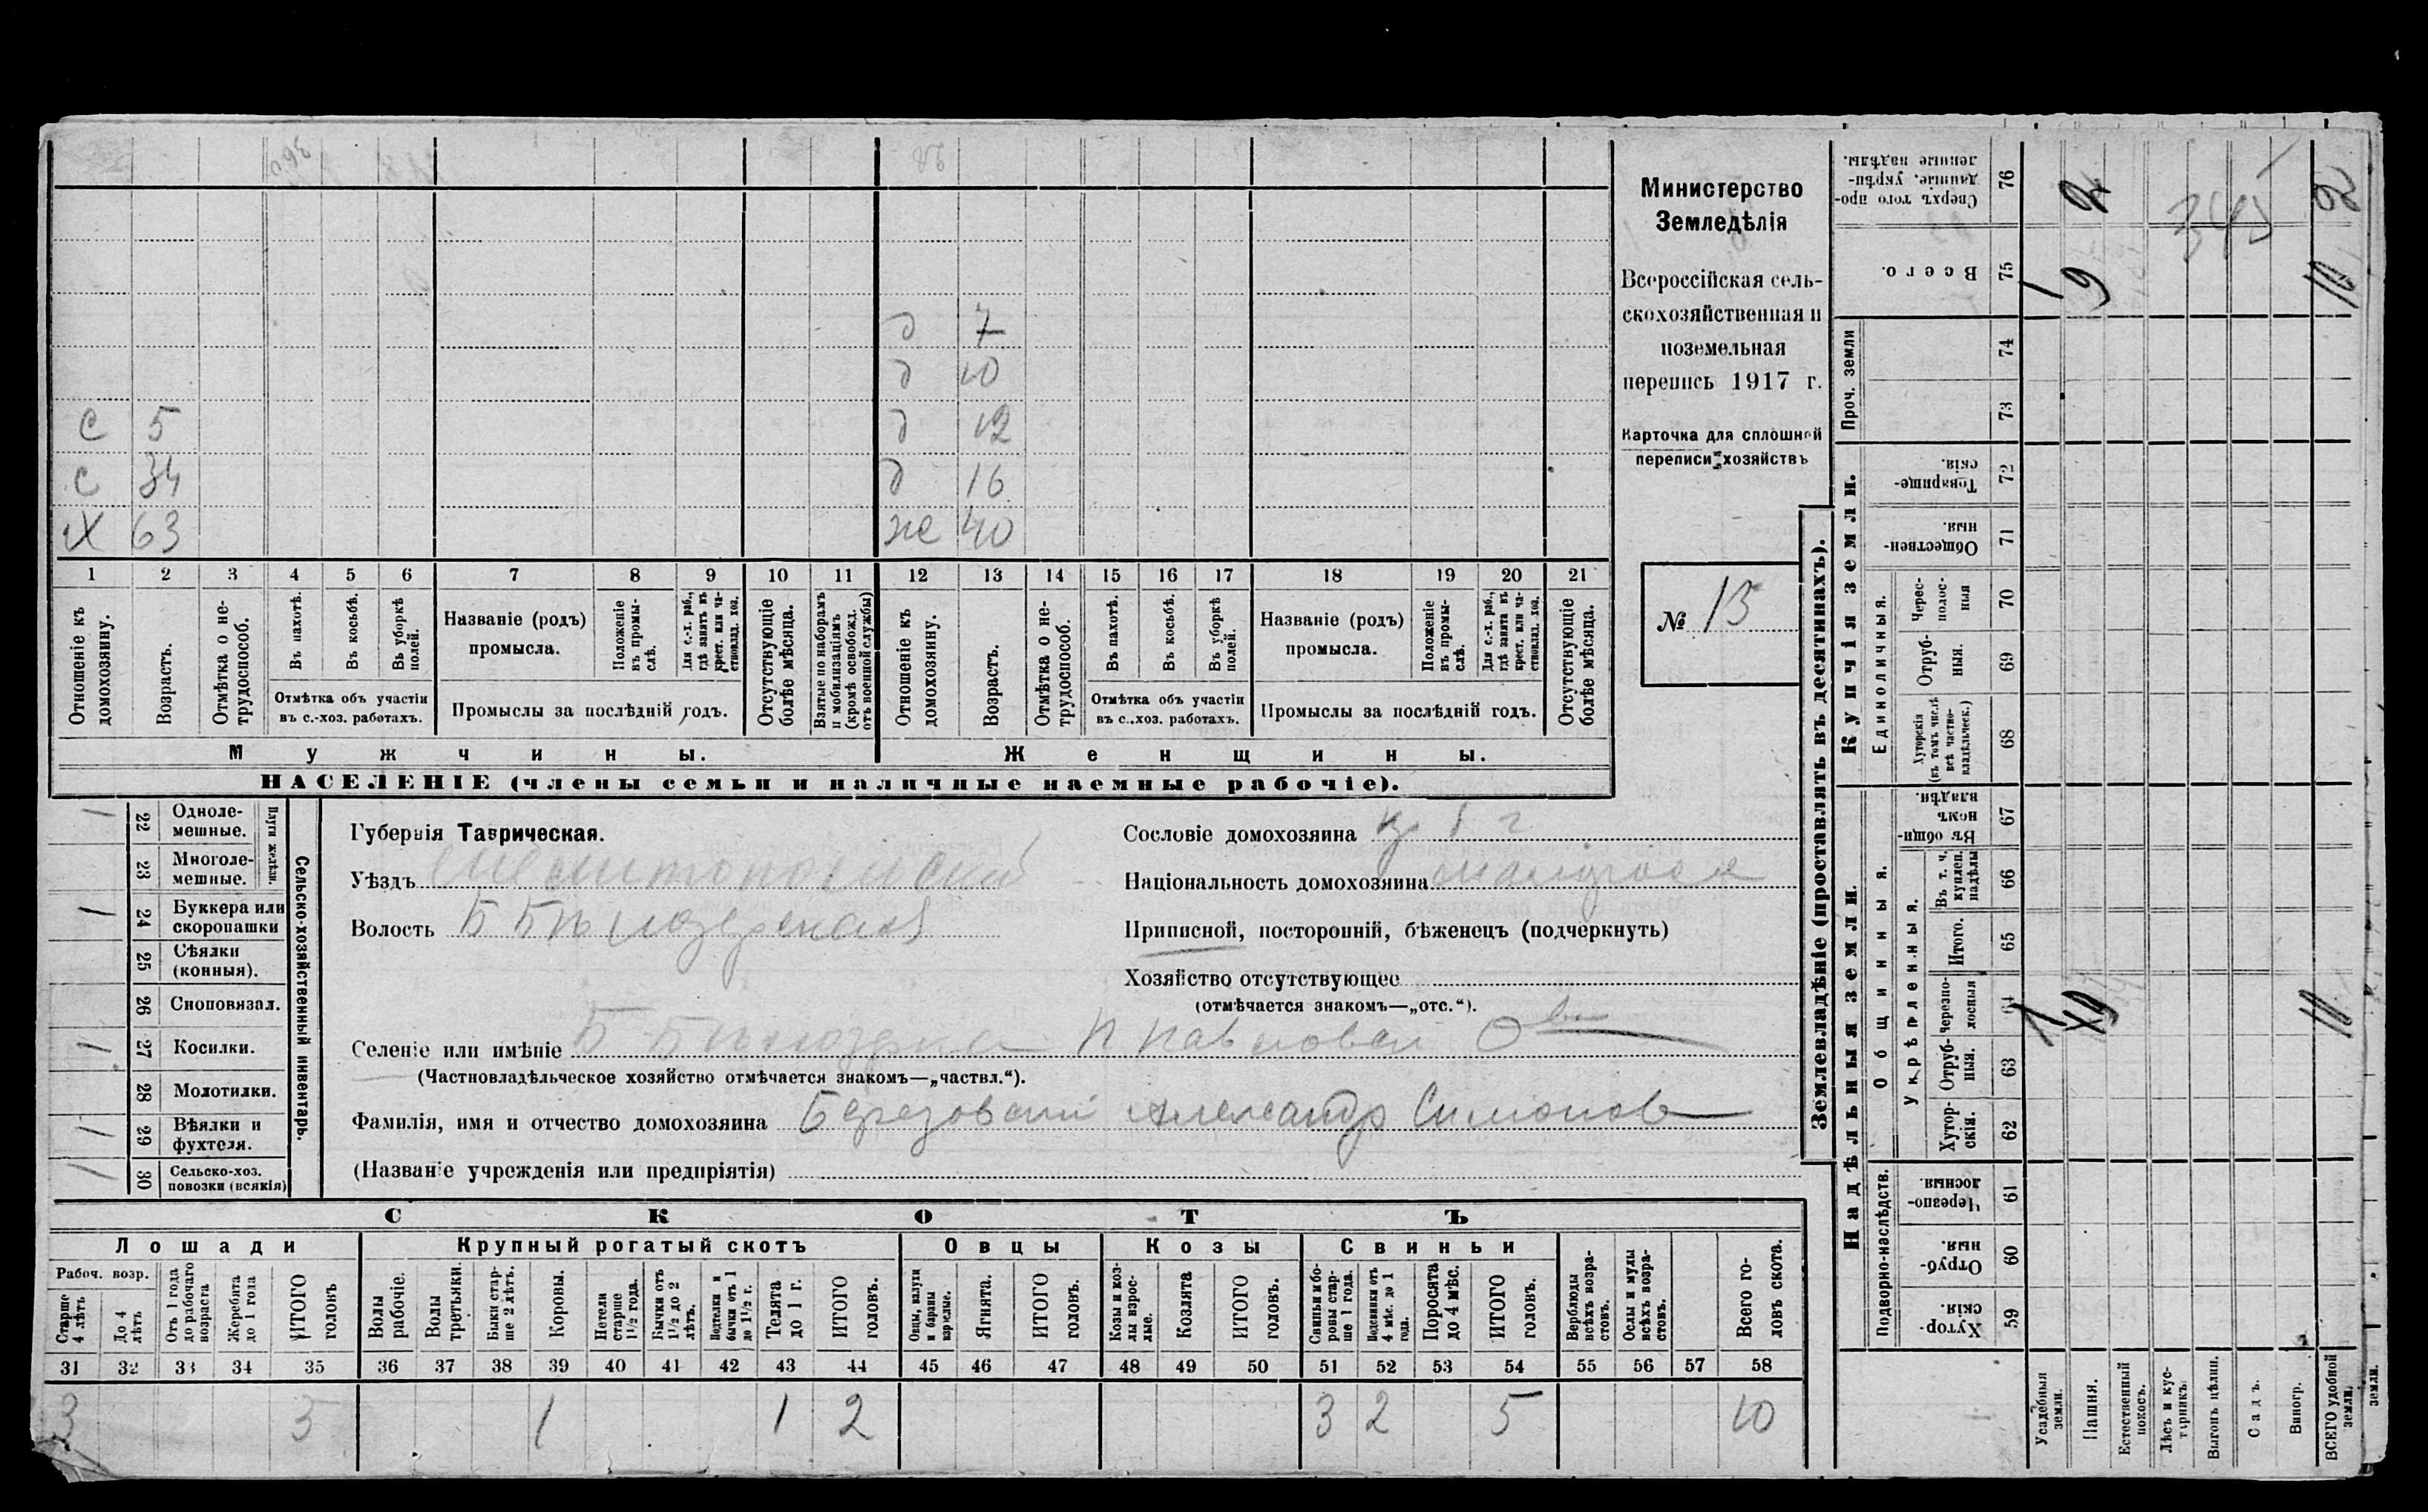 с 5
с 34
х 63
д 7
д 10
д 12
д 16
же 40
1 2 3 4 5 6 7 8 9 10 11 12 13 14 15 16 17 18 19 20 21
Отношеніе къ домохозяину.
Возрастъ.
Отмѣтка о нетрудоспособ.
Въ пахотѣ.
Въ косьбѣ.
Въ уборкѣ полей.
Отмѣтка объ участіи
въ с.-хоз. работахъ.
Названіе (родъ)
промысла.
Положеніе въ промыслѣ.
Для с.-х. раб., гдѣ занятъ въ крест. или частновлад. хоз.
Промыслы за послѣдній годъ.
Отсутствующіе болѣе мѣсяца.
Взятые по наборамъ и мобилизаціямъ (кромѣ освобожд. отъ военной службы)
Отношеніе къ домохозяину.
Возрастъ.
Отмѣтка о нетрудоспособ.
Въ пахотѣ.
Въ косьбѣ.
Въ уборкѣ полей.
Отмѣтка объ участіи
въ с..хоз. работахъ.
Названіе (родъ)
промысла.
Положеніе въ промыслѣ.
Для с.-х. раб., гдѣ занята въ крест. или частновлад. хоз.
Промыслы за послѣдній годъ.
Отсутствующіе болѣе мѣсяца.
Мужчины.
Женщины.
НАСЕЛЕНІЕ (члены семьи и наличные наемные рабочіе).
Министерство
Земледѣлія
Всероссійская сель-
скохозяйственная и
поземельная
перепись 1917 г.
Карточка для сплошной
переписи хозяйствъ
№ 13
Сельско-хозяйственный инвентарь.
Плуги желѣзн.
22 Одноле-
мешные.
23 Многоле-
мешные.
24 Буккера или
скоропашки
25 Сѣялки
(конныя).
26 Сноповязал.
27 Косилки.
28 Молотилки.
29 Вѣялки и
фухтеля.
30 Сельско-хоз.
повозки (всякія)
Губернія Таврическая.
Уѣздъ Мелитопольскій
Волость Б Бѣлозерская
Селеніе или имѣніе Б Бѣлозерка
(Частновладѣльческое хозяйство отмѣчается знакомъ—„частвл.“).
Фамилія, имя и отчество домохозяина Березовский Александр Симонов
(Названіе учрежденія или предпріятія)
Сословіе домохозяина
Національность домохозяина малоросс
Приписной, посторонній, бѣженецъ (подчеркнуть)
Хозяйство отсутствующее
(отмѣчается знакомъ—„отс.“).
СКОТЪ
Лошади
Крупный рогатый скотъ
Овцы
Козы
Свиньи
Рабоч. возр.
Старше 4 лѣтъ
До 4 лѣтъ
Отъ 1 года до рабочаго возраста
Жеребята до 1 года
ИТОГО головъ
Волы рабочіе.
Волы третьяки.
Быки старше 2 лѣтъ.
Коровы.
Нетели старше 1½ года.
Бычки отъ 1½ до 2 лѣтъ.
Подтелки и бычки отъ 1 до 1½ г.
Телята до 1 г.
ИТОГО головъ.
Овцы, валухи и бараны взрослые.
Ягнята.
ИТОГО головъ.
Козы и козлы взрослые.
Козлята
ИТОГО головъ.
Свиньи и боровы старше 1 года.
Подсвинки отъ 4 мѣс. до 1 года.
Поросята до 4 мѣс.
ИТОГО головъ.
Верблюды всѣхъ возрастовъ.
Ослы и мулы всѣхъ возрастовъ.
Всего головъ скота.
31 32 33 34 35 36 37 38 39 40 41 42 43 44 45 46 47 48 49 50 51 52 53 54 55 56 57 58
3 3 1 1 2 3 2 5 10
Землевладѣніе (проставлять въ десятинахъ).
Надѣльныя земли.
Купчія земли.
Проч. земли
Подворно-наслѣдств.
Общинныя.
Укрѣпленныя.
Единоличныя.
Сверхъ того проданные, укрѣпленные надѣлы. 76
Всего. 75
74
73
Товарищескія. 72
Общественныя. 71
Черезполосныя 70
Отрубныя. 69
Хуторскія (въ томъ числѣ всѣ частновладѣльческ.) 68
Въ общинномъ владѣн. 67
Въ т. ч. куплен. надѣлы 66
Итого. 65
Черезполосныя 64
Отрубныя. 63
Хуторскія. 62
Черезполосныя. 61
Отрубныя. 60
Хуторскія. 59
Усадебныя земли.
Пашня.
Естественный покосъ.
Лѣсъ и кустарникъ
Выгонъ цѣлин.
Садъ.
Виногр.
ВСЕГО удобной земли.
земли.
2 345 2
1 9 10
1 9 10